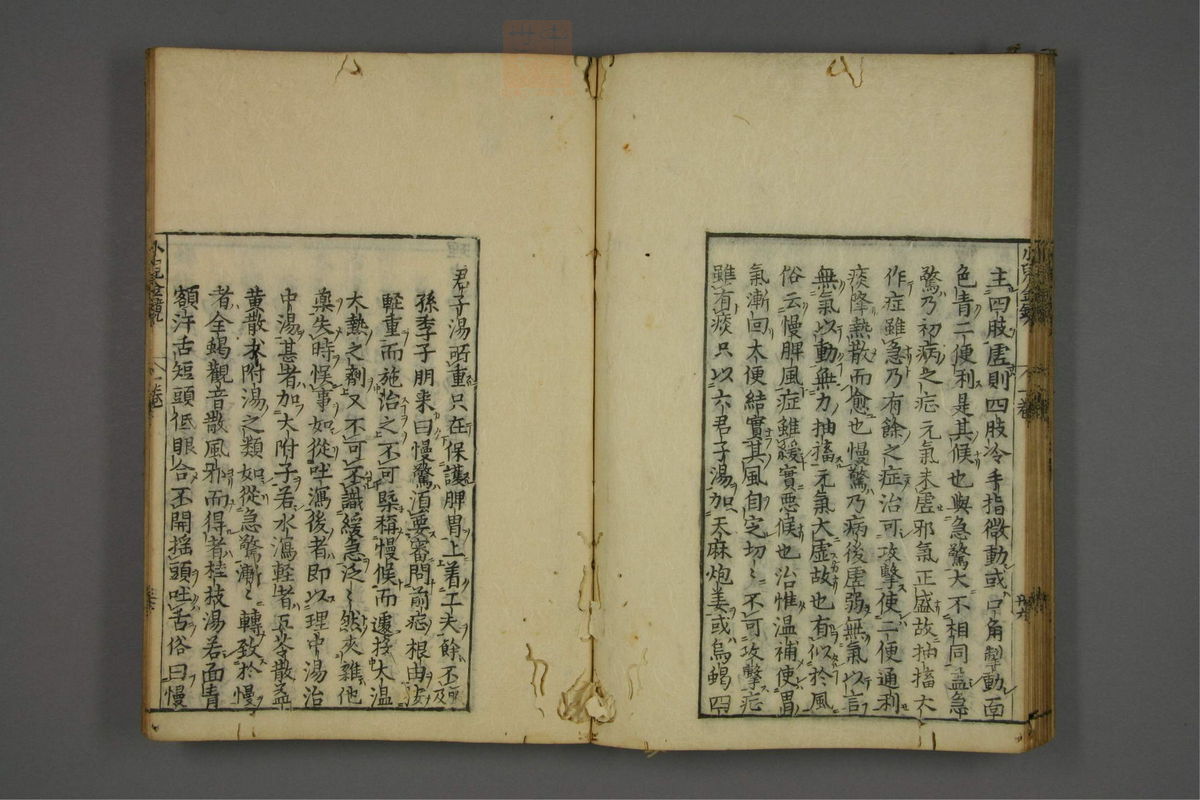 主四肢虛則四肢冷手指微動或口角掣動面
色青二便利是其候也與急驚大不相同盖急
驚乃初病之症元氣未虛邪氣正盛故抽搐大
作症雖急乃有餘之症治可攻擊使二便通利
痰降熱散而愈也慢驚乃病後虛弱無氣以言
無氣以動無力抽搐元氣大虛故也有似於風
俗云慢脾風症雖緩實悪候也治惟温補使胃
氣漸回大便結實其風自定切〻不可攻擊症
雖有痰只以六君子湯加天麻炮姜或烏蝎四
君子湯所重只在保護脾胃上着子夫餘不可及
孫季子朋来曰慢驚湏要審問前症根由
軽重而施治之不可槩稱慢候而遽投大温
大熱之劑又不可不識緩急泛〻然夾雜他
藥失時悮事如從吐瀉後者即以理中湯治
中湯甚者加大附子若水瀉軽者五苓散益
黄散朮附湯之類如從急驚漸〻轉致於慢
者全蝎觀音散風邪而得者桂枝湯若面青
額汗舌短頭低眼合不開摇頭吐舌俗曰慢